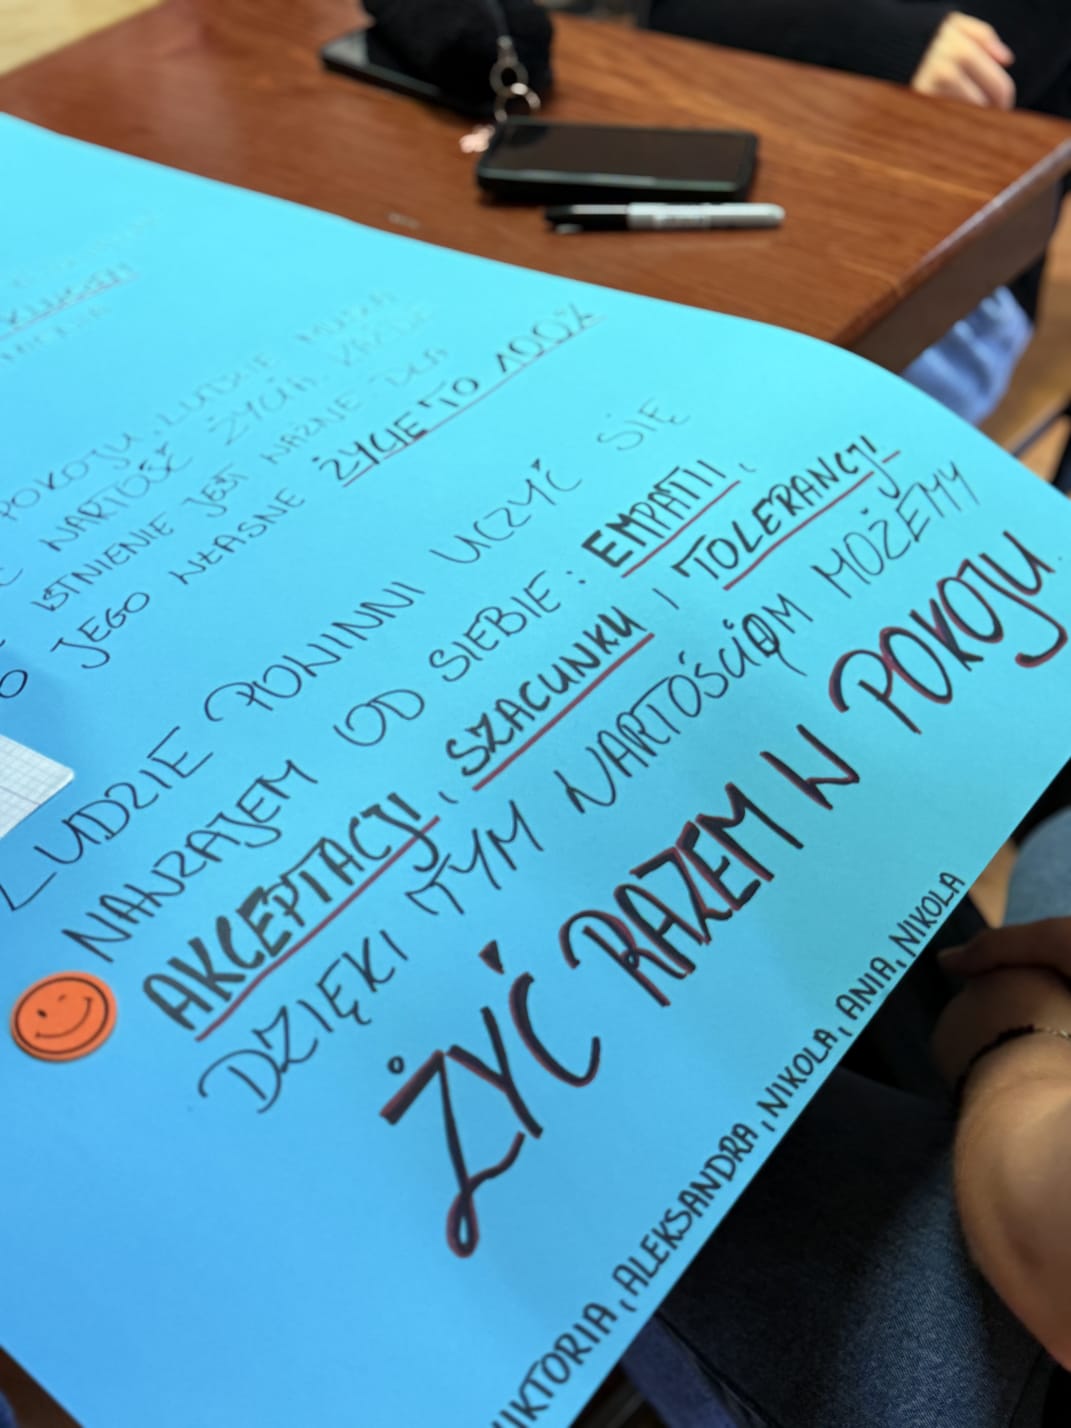 KLUSEM
POKOJU LUDZIE MUSZĄ
WARTOŚĆ ŻYCIA. KAŻDE
ISTNIENIE JEST WAŻNE DLA
JEGO WŁASNE ŻYCIE TO 100%
LUDZIE POWINNI UCZYĆ SIĘ
NAWZAJEM OD SIEBIE: EMPATII,
AKCEPTACJI, SZACUNKU I TOLERANCJI
DZIĘKI TYM WARTOŚCIOM MOŻEMY
ŻYĆ RAZEM W POKOJU.
WIKTORIA, ALEKSANDRA, NIKOLA, ANIA, NIKOLA